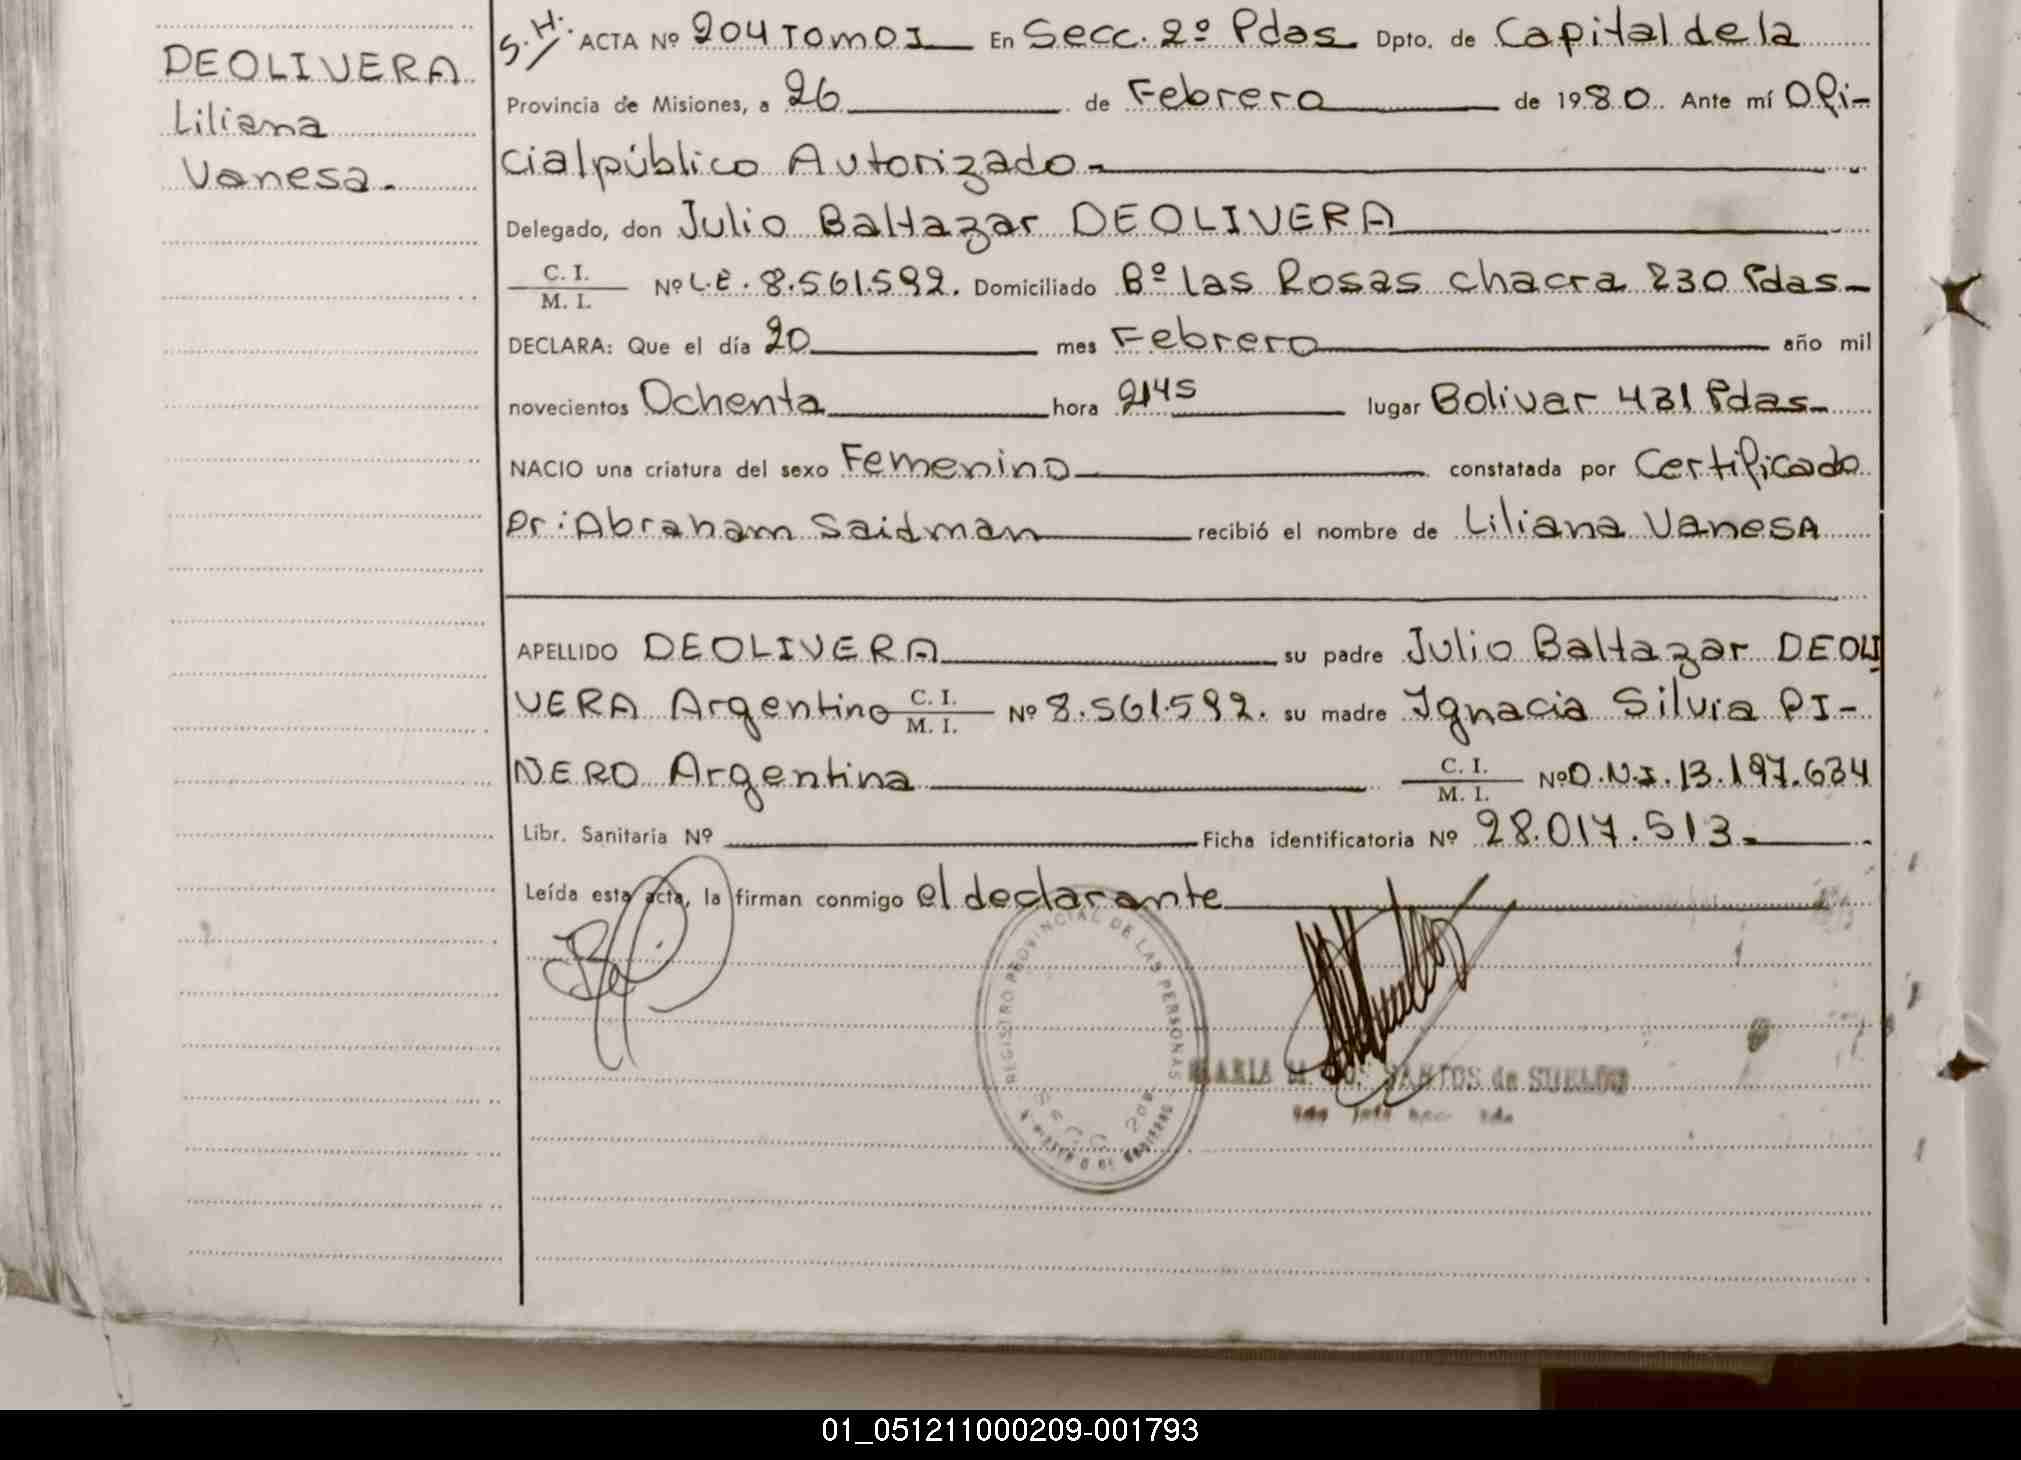 DEOLIVERA
Liliana
Vanesa.
S.H. ACTA Nº 204 TOMO I En Secc. 2º Pdas. Dpto. de Capital de la
Provincia de Misiones, a 26 de Febrero de 1980. Ante mí Ofi-
cial público Autorizado-
Delegado, don Julio Baltazar DEOLIVERA
C. I.
M. I. Nº L.E. 8.561.592. Domiciliado Bº las Rosas chacra 230 Pdas-
DECLARA: Que el día 20 mes Febrero año mil
novecientos Ochenta hora 2145 lugar Bolivar 431 Pdas-
NACIO una criatura del sexo Femenino constatada por Certificado
Dr: Abraham Saidman recibió el nombre de Liliana Vanesa
APELLIDO DEOLIVERA su padre Julio Baltazar DEOLI
VERA Argentino C. I. M. I. Nº 8.561.592. su madre Ignacia Silvia PI-
ÑERO Argentina C. I. M. I. Nº D.N.I. 13.197.634
Libr. Sanitaria Nº Ficha identificatoria Nº 28.017.513-
Leída esta acta, la firman conmigo el declarante
REGISTRO PROVINCIAL DE LAS PERSONAS
Secc 2da
MARIA SANTOS de SUELDO
01_051211000209-001793